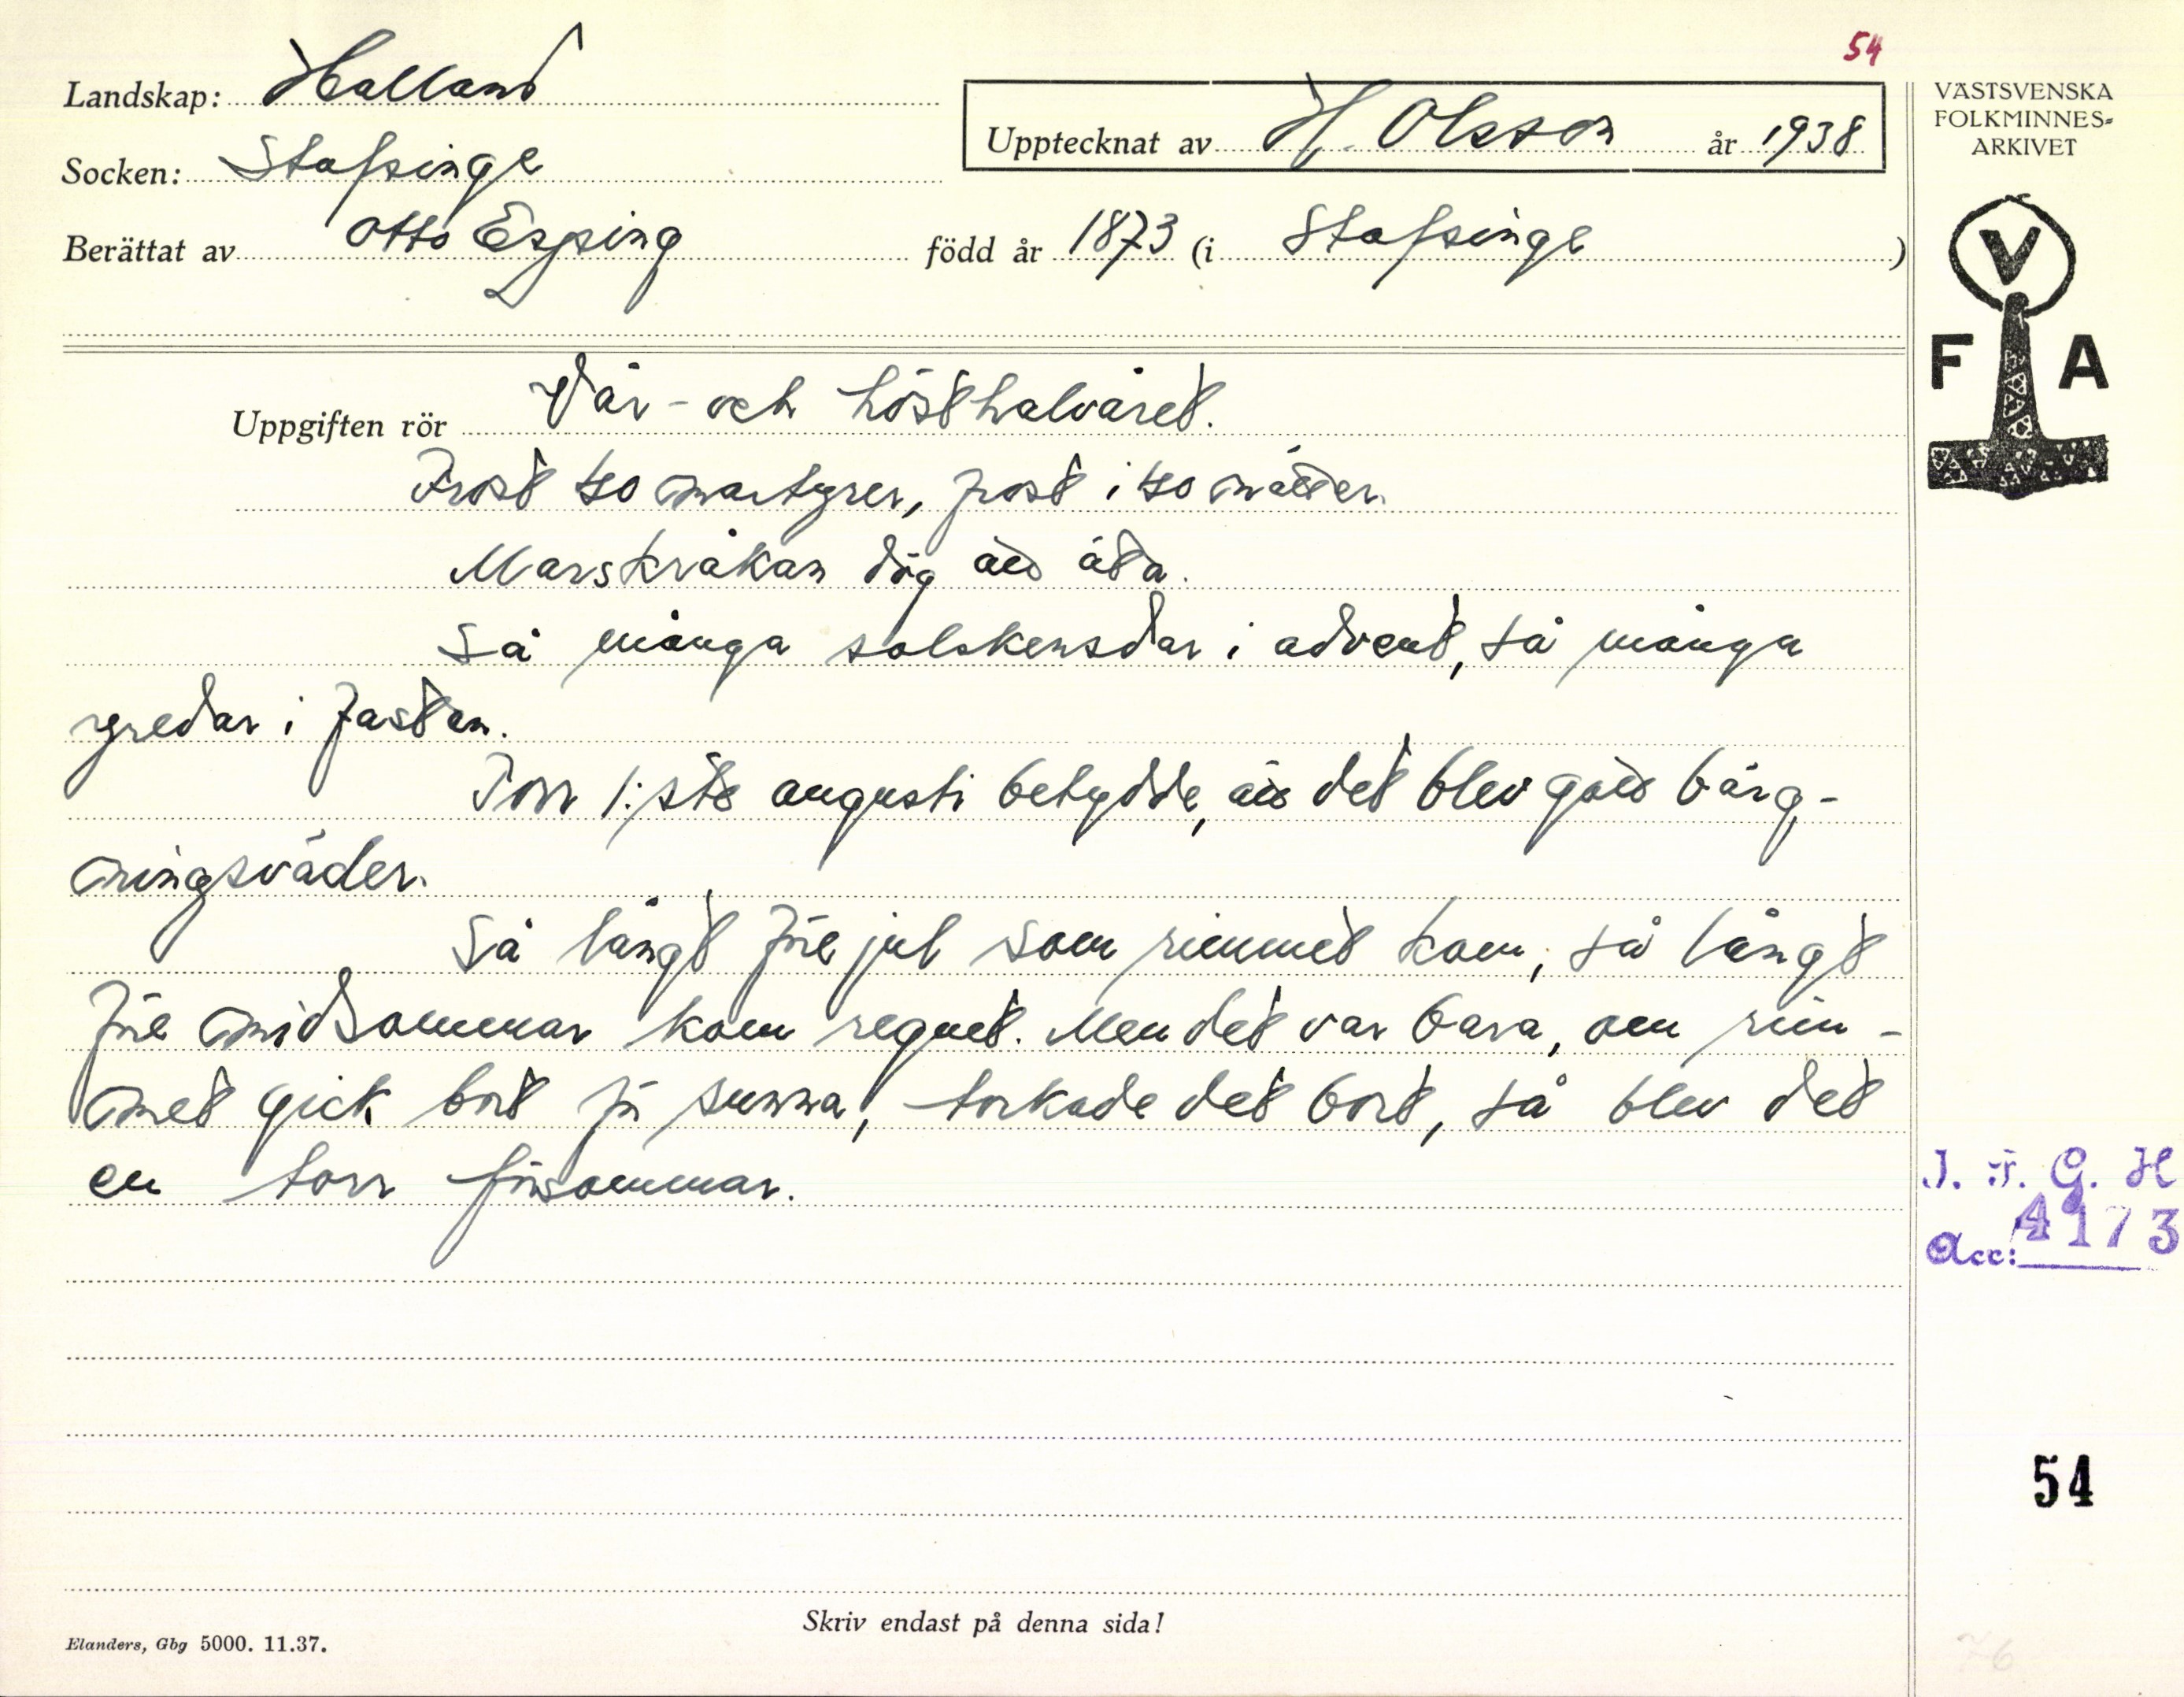 54
Landskap: Halland
Upptecknat av H. Olsson år 1938
VÄSTSVENSKA
FOLKMINNES-
ARKIVET
Socken: Stafsinge
Berättat av Otto Esping född år 1873 (i Stafsinge)
V
F A
Uppgiften rör Vår- och hösthalvåret.
Frost 40 martyrer, frost i 40 nätter.
Marskråkan dög att äta.
Så många solskensdar i advent, så många
yredar i fastan.
Torr 1:sta augusti betydde, att det blev gott bärg-
ningsväder.
Så långt före jul som rimmet kom, så långt
före midsommar kom regnet. Men det var bara, om rim-
met gick bort för sunna, torkade det bort, så blev det
en torr försommar.
I. F. G. H
Acc: 4173
54
Skriv endast på denna sida!
Elanders, Gbg 5000. 11.37.
76